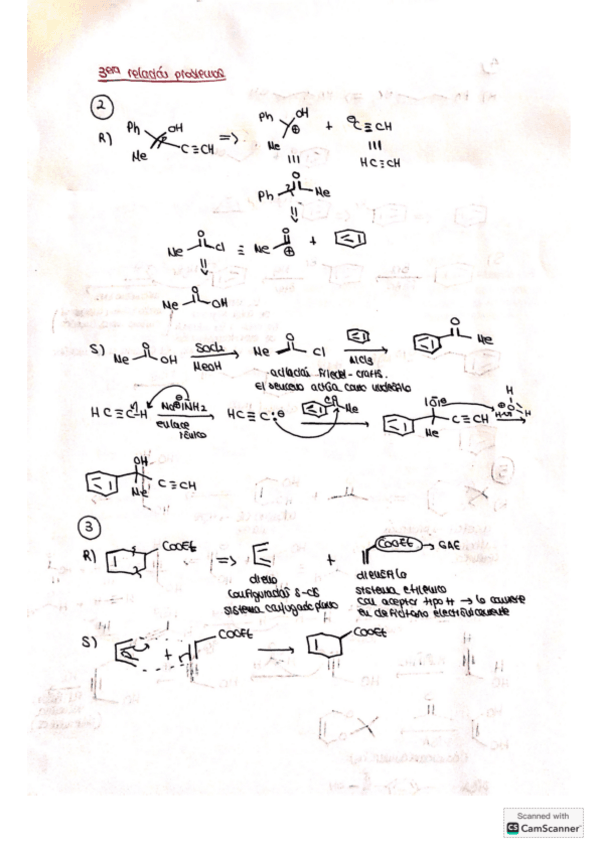 3era relación problemas
2
R) Ph OH Me C≡CH => Ph OH ⊕ Me + ⊖C≡CH
HC≡CH
Ph O Me
Me O Cl ≡ Me O ⊕ +
Me O OH
S) Me O OH SOCl2 MeOH Me O Cl AlCl3 O Me
acilación Friedel-Crafts.
el benceno actúa como nucleófilo
HC≡C-H Na⊕ ⊖NH2 HC≡C:⊖ Me C≡CH Me H H H
enlace
iónico
OH Me C≡CH
3
R) COOEt => + COOEt → GAE
dieno
configuración s-cis
sistema conjugado plano
dienófilo
sistema etilénico
con aceptor tipo π → lo convierte
en deficitario electrónicamente
S) + COOEt → COOEt
Scanned with
CS CamScanner